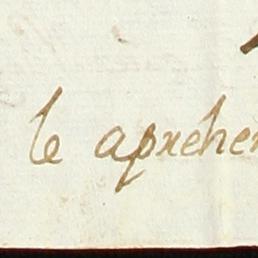 le aprehen